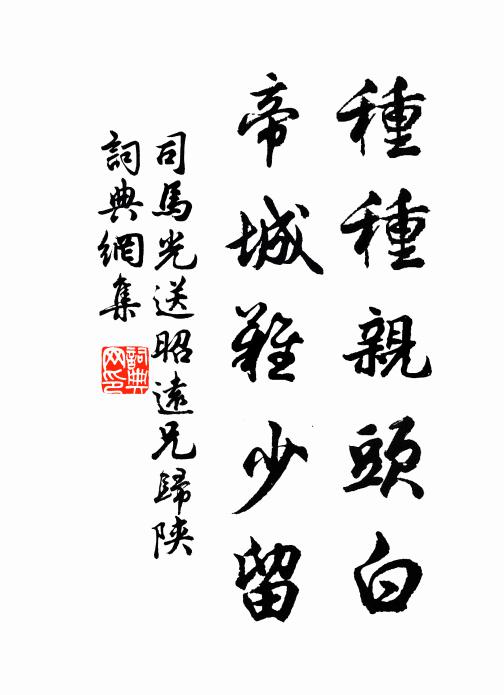 種種親頭白
帝城難少留
司馬光送昭遠兄歸陝
詞典網集
詞典
网印